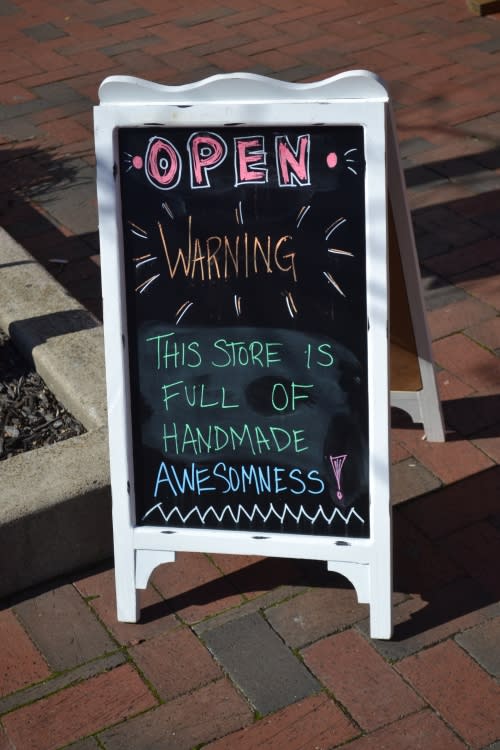 OPEN
WARNING
THIS STORE IS
FULL OF
HANDMADE
AWESOMNESS!